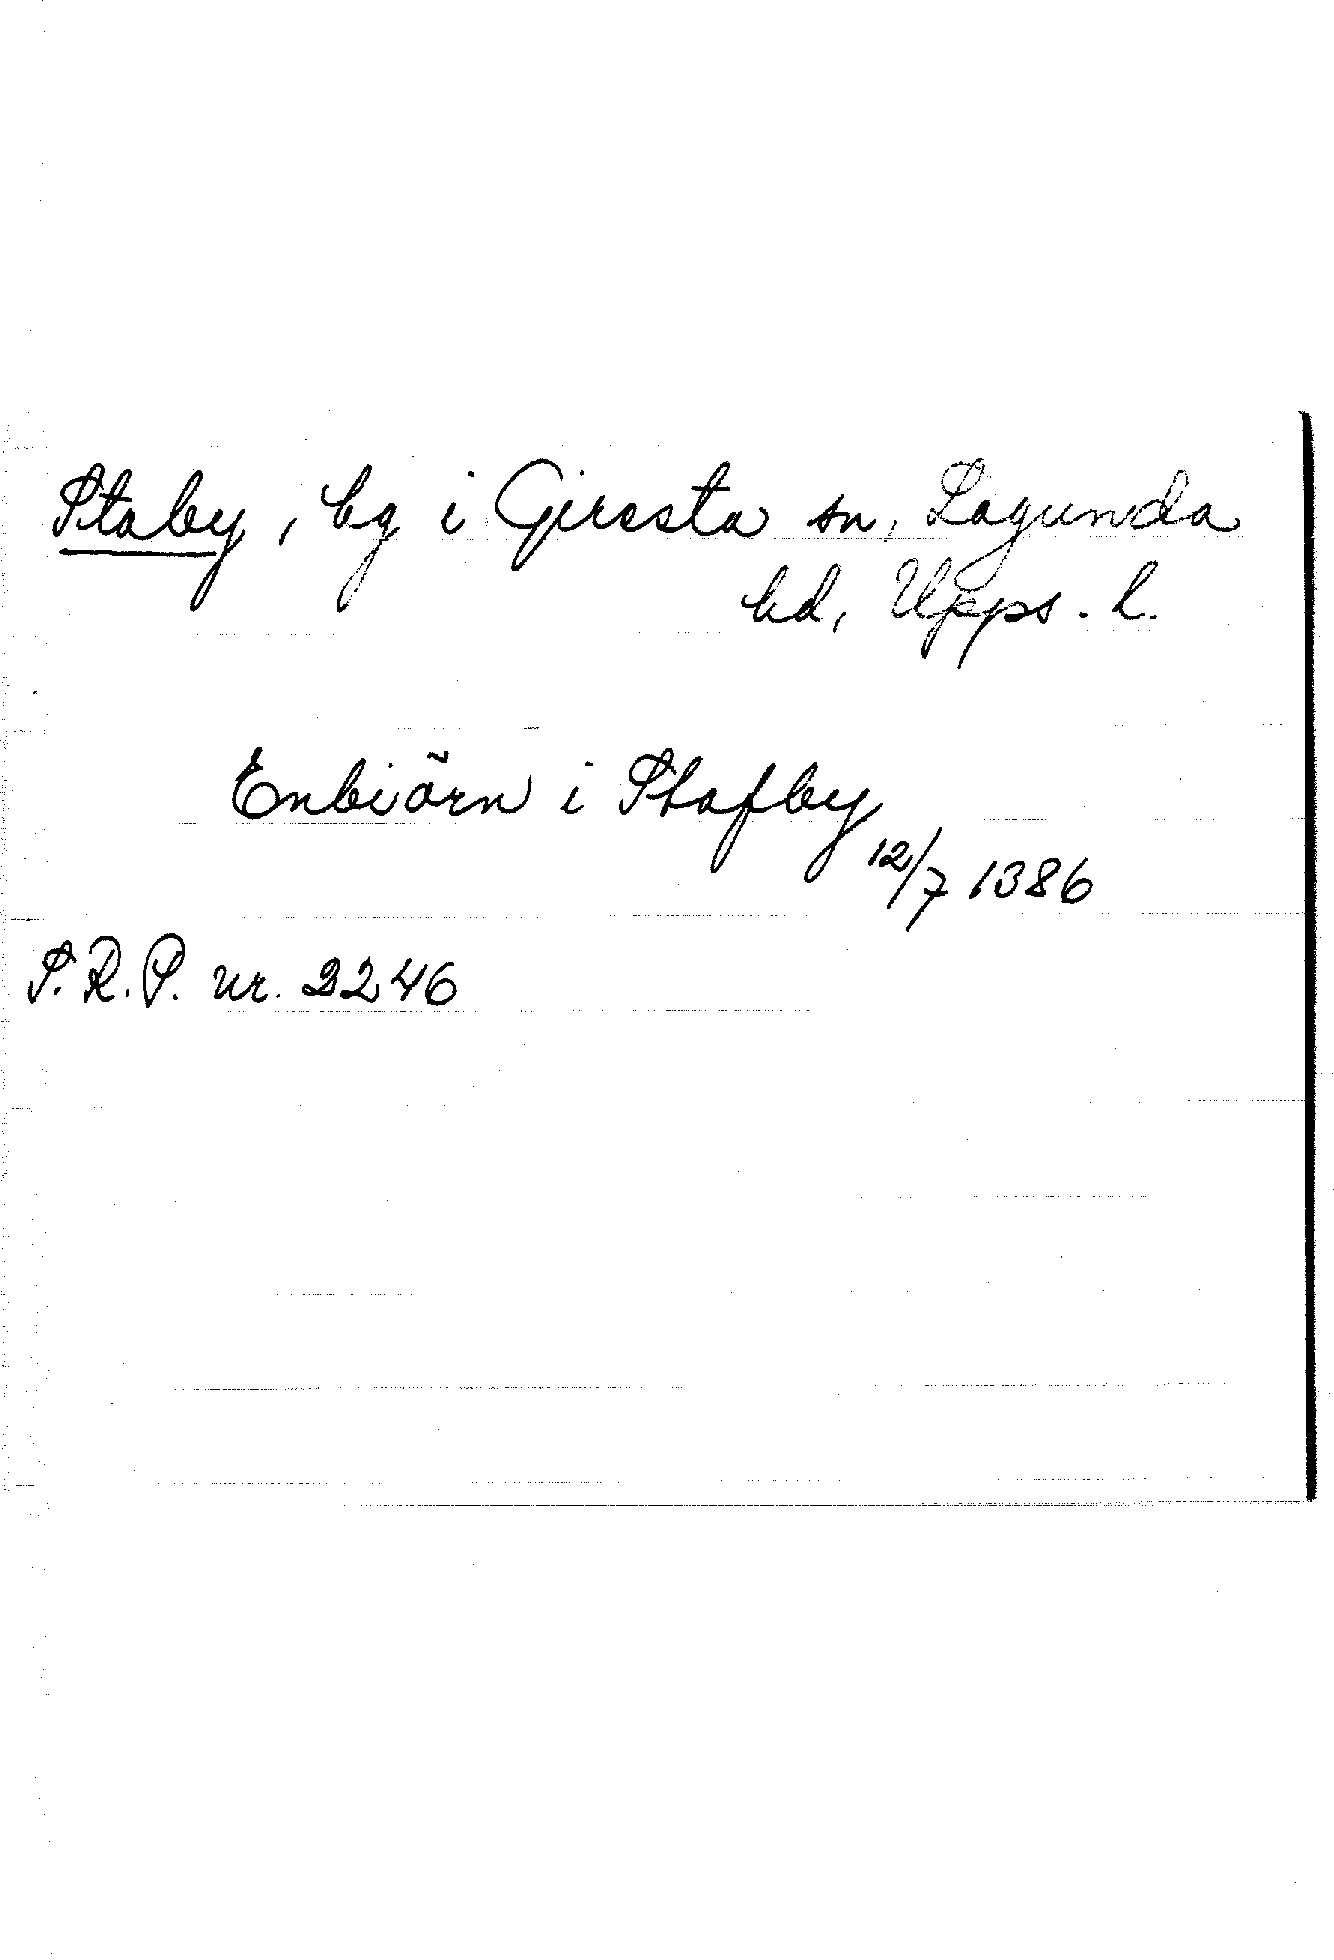 Staby, by i Giresta sn, Lagunda
hd, Upps. l.
Enbiörn i Stafby
12/7 1386
S.R.P. nr. 2246